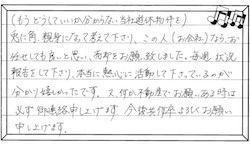 (もうどうしていいか分からない当社遊休物件を)
兎に角、親身になって考えて下さり、この人(お会社)なら、お
任せしても良いと思い、売却をお願い致しました。毎週 状況
報告をして下さり、本当に熱心に活動して下さっているのが
分かり嬉しかったです。又、何か不動産でお願いある時は
必ず御連絡申し上げます。今後共何卒よろしくお願い
申し上げます。